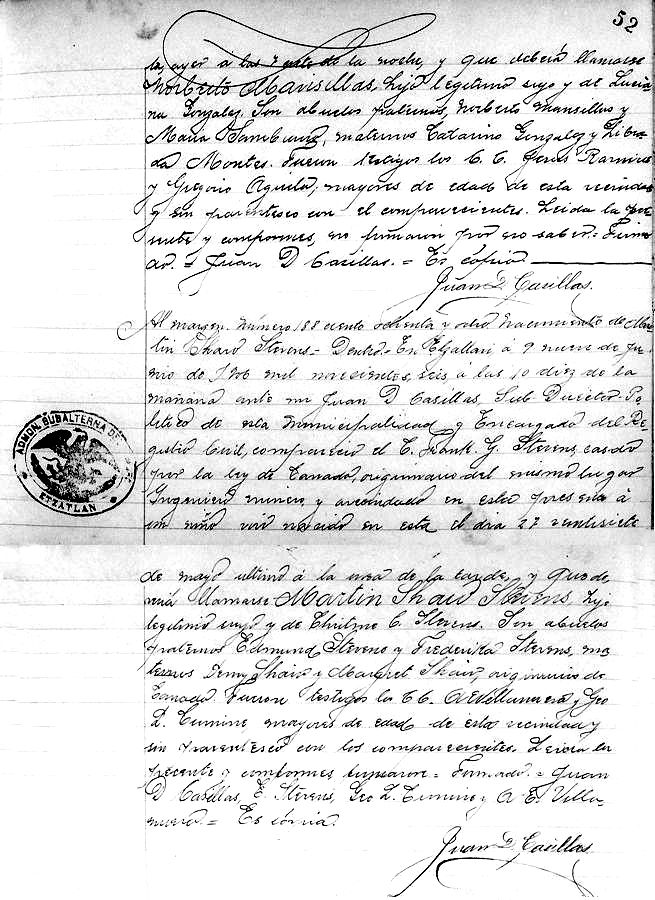 52
la, ayer á las siete de la noche, y que deberá llamarse
Norberto Mansillas, hijo legitimo suyo y de Lucia-
na Gonzalez. Son abuelos paternos, Norberto Mansillas y
Maria, maternos Catarino Gonzalez y Libra-
da Montes. Fueron testigos los C. C. Jesus Ramirez
y Gregorio Aguila, mayores de edad de esta vecindad
y sin parentesco con el compareciente. Leida la pre-
sente y conformes, no firmaron por no saber.= Firma-
do.= Juan D Casillas.= Es copia
Juan D. Casillas.
Al margen. Número 188 ciento ochenta y ocho. Nacimiento de Mar-
tin Shaw Stevens.= Dentro.= En á 9 nueve de Ju-
nio de 1906 mil novecientos seis á las 10 diez de la
mañana ante mi Juan D Casillas, Sub-Director Po-
litico de esta municipalidad y Encargado del Re-
gistro Civil, compareció el C. Frank. G. Stevens, casado
por la ley de Canadá, originario del mismo lugar
Ingeniero minero, y avecindado en esta presenta á
un niño vivo nacido en esta el dia 27 veintisiete
ADMON. SUBALTERNA DE
ETZATLAN
de mayo ultimo á la una de la tarde, y que de-
verá llamarse Martin Shaw Stevens, hijo
legitimo suyo y de C. Stevens. Son abuelos
paternos Edmund Stevens y Frederika Stevens, ma-
ternos Shaw y Margret Shaw, originarios de
Canadá. Fueron testigos los CC. A E Villanueva y Geo
L. mayores de edad de esta vecindad y
sin parentesco con los comparecientes. Leida la
presente y conformes firmaron = Firmado.= Juan
D Casillas, E. Stevens, Geo L. y A. E. Villa-
nueva.= Es copia.
Juan D. Casillas